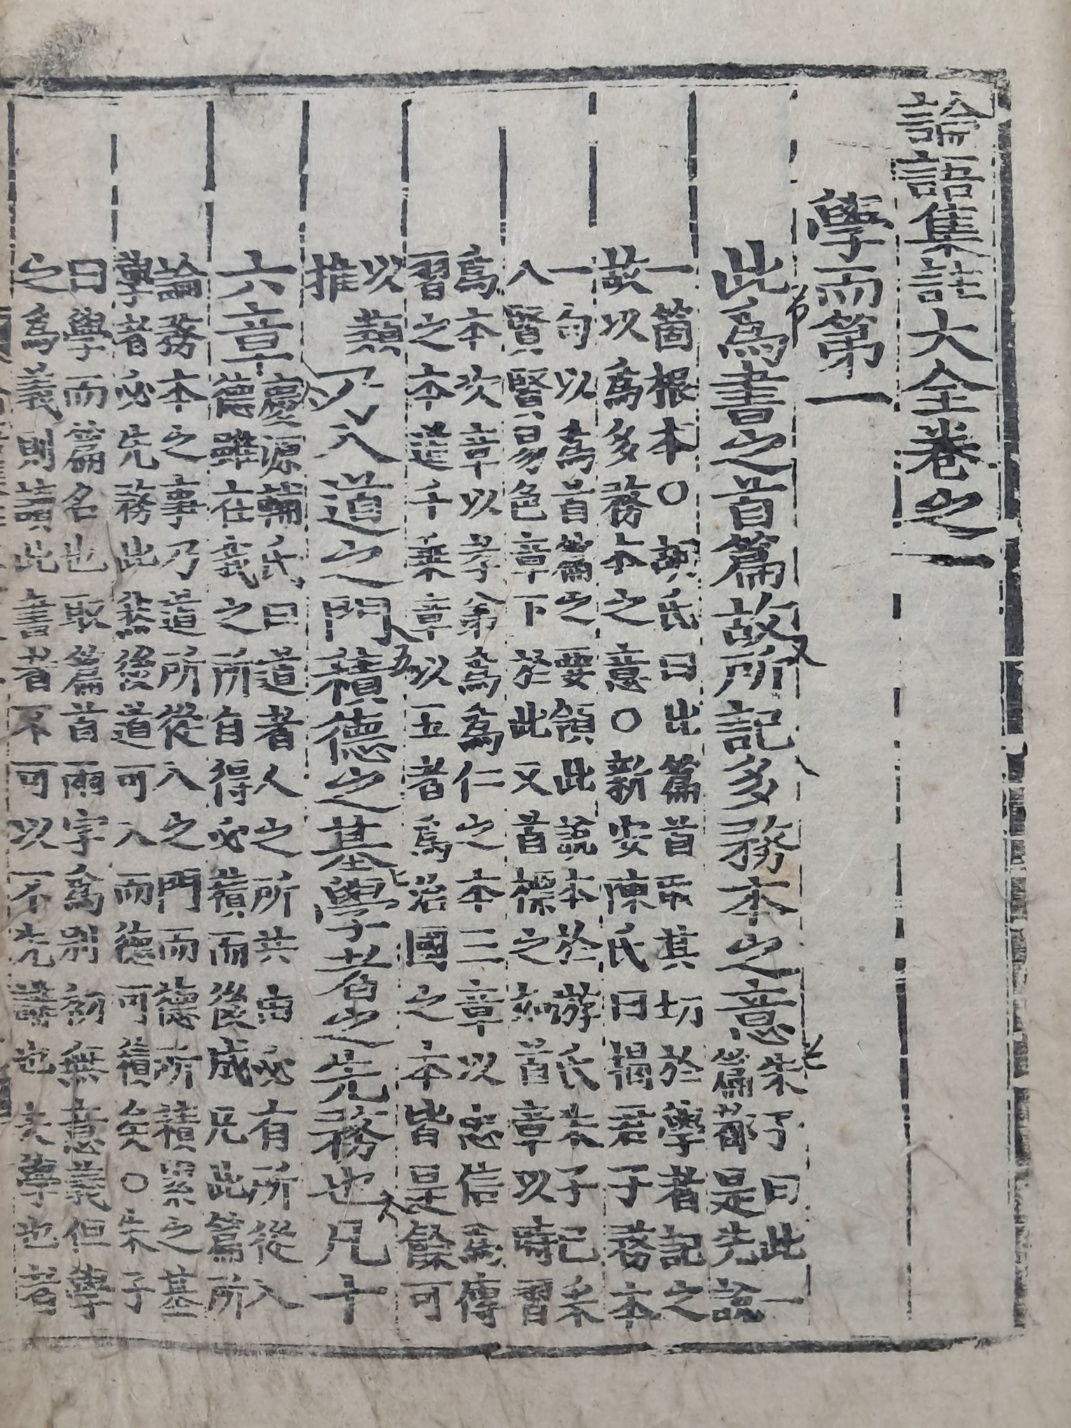 論語集註大全卷之一
學而第一
此爲書之首篇故所記多務本之意朱子曰此一
篇都是先說
一箇根本○胡氏曰此篇首取其切於學者記之
故以爲多務本之意○新安陳氏曰揭君子務本
一句以爲首篇之要領此說本於游氏朱子已采
入賢賢易色章下於此又首標之如首章以時習
爲本次章以孝弟爲爲仁之本三章以忠信爲傳
習之本道千乘章以五者爲治國之本皆是餘可
以類
推
乃入道之門積德之基學者之先務也凡十
六章慶源輔氏曰道者人之所共由必有所從入
德雖在我之所自得必積而後成凡此篇所
論務本之事乃道所從入之門而德所積累之基
學者必先務此然後道可入而德可積矣○朱子
曰學而篇名也取篇首兩字爲別初無意義但學
之爲義則讀此書者不可以不先講也夫學也者